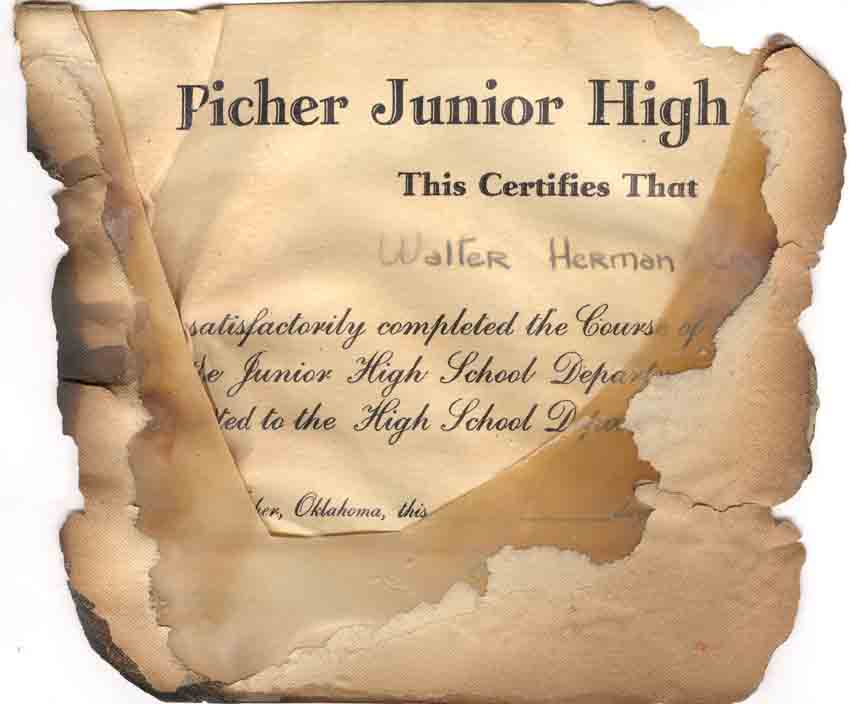 Picher Junior High
This Certifies That
Walter Herman
satisfactorily completed the Course of
Junior High School
to the High School
Oklahoma, this